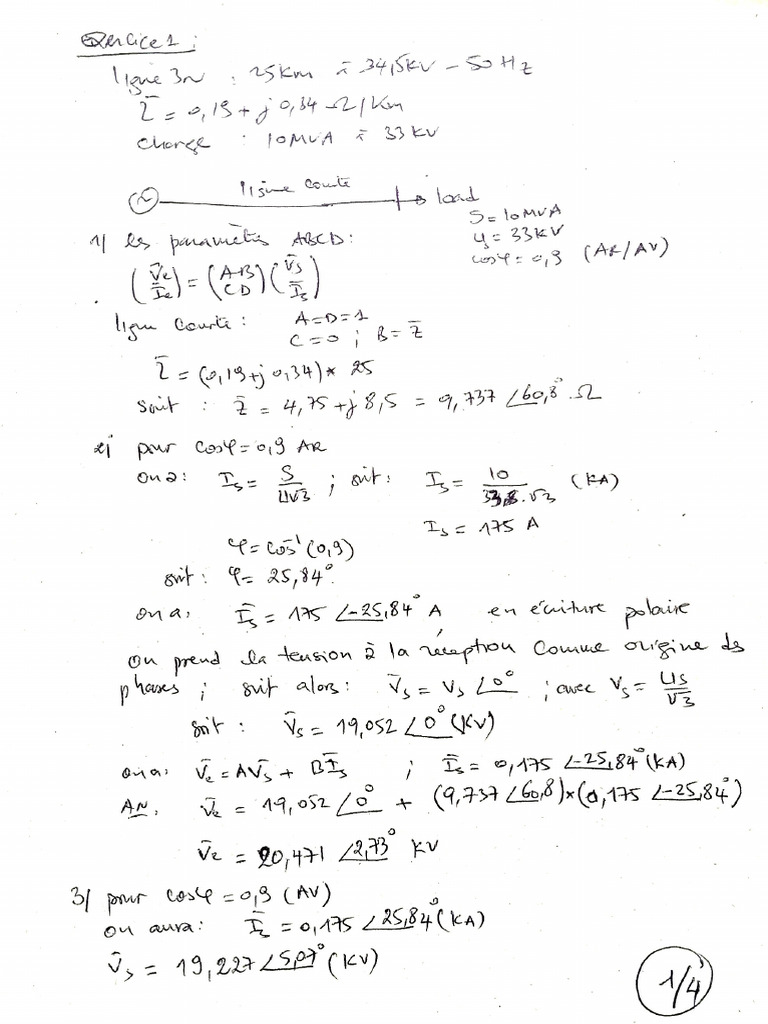 Exercice 1 :
ligne 3~ : 25km à 34,5kV - 50 Hz
Z̄ = 0,19 + j 0,34 Ω/Km
charge : 10MVA à 33KV
ligne courte
load
S = 10MVA
U = 33KV
cosφ = 0,9 (AR/AV)
1/ les paramètres ABCD:
(V̄e Īe) = (A B C D) (V̄s Īs)
ligne courte : A = D = 1
C = 0 ; B = Z̄
Z̄ = (0,19 + j 0,34) * 25
Soit : Z̄ = 4,75 + j 8,5 = 9,737 ∠60,8° Ω
2/ pour cosφ = 0,9 AR
on a: Is = S/U√3 ; soit: Is = 10/33.√3 (KA)
Is = 175 A
φ = cos⁻¹(0,9)
soit : φ = 25,84°
on a, Īs = 175 ∠-25,84° A en écriture polaire
On prend la tension à la réception comme origine ds
phases ; soit alors: V̄s = Vs ∠0° ; avec Vs = Us/√3
soit : V̄s = 19,052 ∠0° (KV)
on a: V̄e = AV̄s + BĪs ; Īs = 0,175 ∠-25,84° (KA)
AN, V̄e = 19,052 ∠0° + (9,737 ∠60,8) × (0,175 ∠-25,84°)
V̄e = 20,471 ∠2,73° KV
3/ pour cosφ = 0,9 (AV)
on aura: Īs = 0,175 ∠25,84° (KA)
V̄s = 19,227 ∠5,07° (KV)
1/4